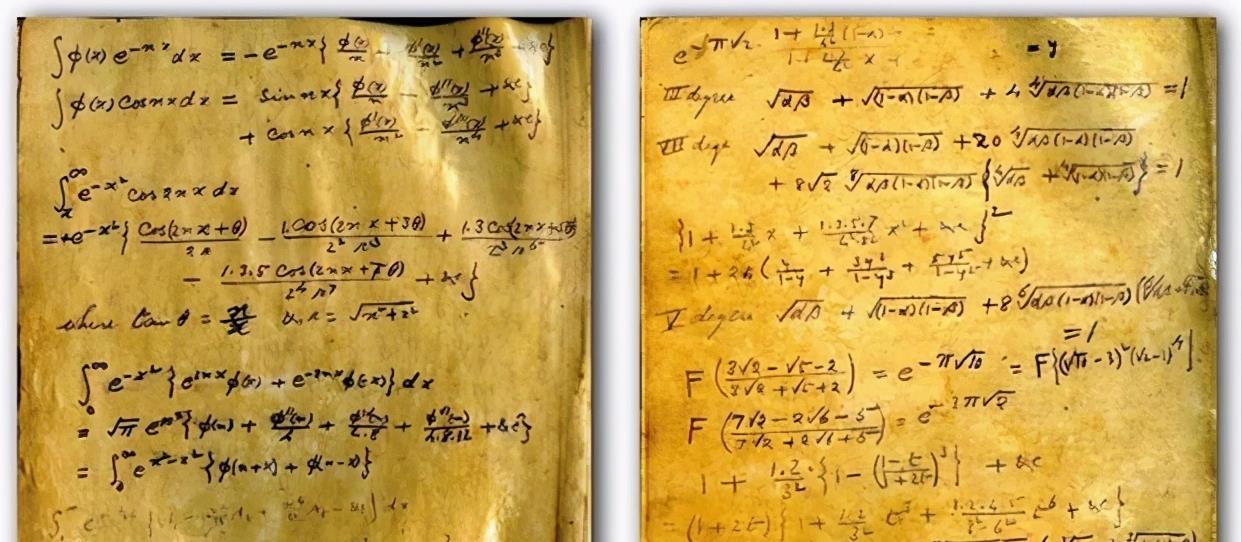 ∫ φ(x) e^{-nx} dx = -e^{-nx} { φ(x)/n + φ'(x)/n² + φ''(x)/n³ + &c }
∫ φ(x) cos nx dx = sin nx { φ(x)/n - φ''(x)/n³ + &c }
+ cos nx { φ'(x)/n² - φ'''(x)/n⁴ + &c }
∫_x^∞ e^{-x²} cos 2nx dx
= e^{-x²} { cos(2nx+θ)/2r - 1.cos(2nx+3θ)/2²r³ + 1.3 cos(2nx+5θ)/2³r⁵
- 1.3.5 cos(2nx+7θ)/2⁴r⁷ + &c }
where tan θ = n/x & r = √(n²+x²)
∫_0^∞ e^{-x²} { e^{2nx} φ(x) + e^{-2nx} φ(-x) } dx
= √π e^{n²} { φ(n) + φ''(n)/4 + φ''''(n)/4.8 + /4.8.12 + &c }
= ∫_0^∞ e^{n²-x²} { φ(n+x) + φ(n-x) }
dx
e^{-π√2}
= y
III degree √αβ + √(1-α)(1-β) + 4 √αβ(1-α)(1-β) = 1
VII degree √αβ + √(1-α)(1-β) + 20 √αβ(1-α)(1-β)
+ 8√2 ⁸√αβ(1-α)(1-β) { ⁴√αβ + ⁴√(1-α)(1-β) } = 1
{ 1 + 1.3/4² x + 1.3.5.7/4².8² x² + &c }²
= 1 + 24 ( y/1-y + 3y³/1-y³ + 5y⁵/1-y⁵ + &c )
V degree √αβ + √(1-α)(1-β) + 8 ⁶√αβ(1-α)(1-β)
= 1
F ( 3√2 - √5 - 2 / 3√2 + √5 + 2 ) = e^{-π√10} = F { (√10 - 3)² (√2 - 1)⁴ }
F ( 7√2 - 2√6 - 5 / 7√2 + 2√6 + 5 ) = e^{-3π√2}
1 + 1.2/3² { 1 - ( 1-t / 1+2t )³ } + &c
= (1+2t) { 1 + 1.2/3² t³ + 1.2.4.5/3².6² t⁶ + &c }